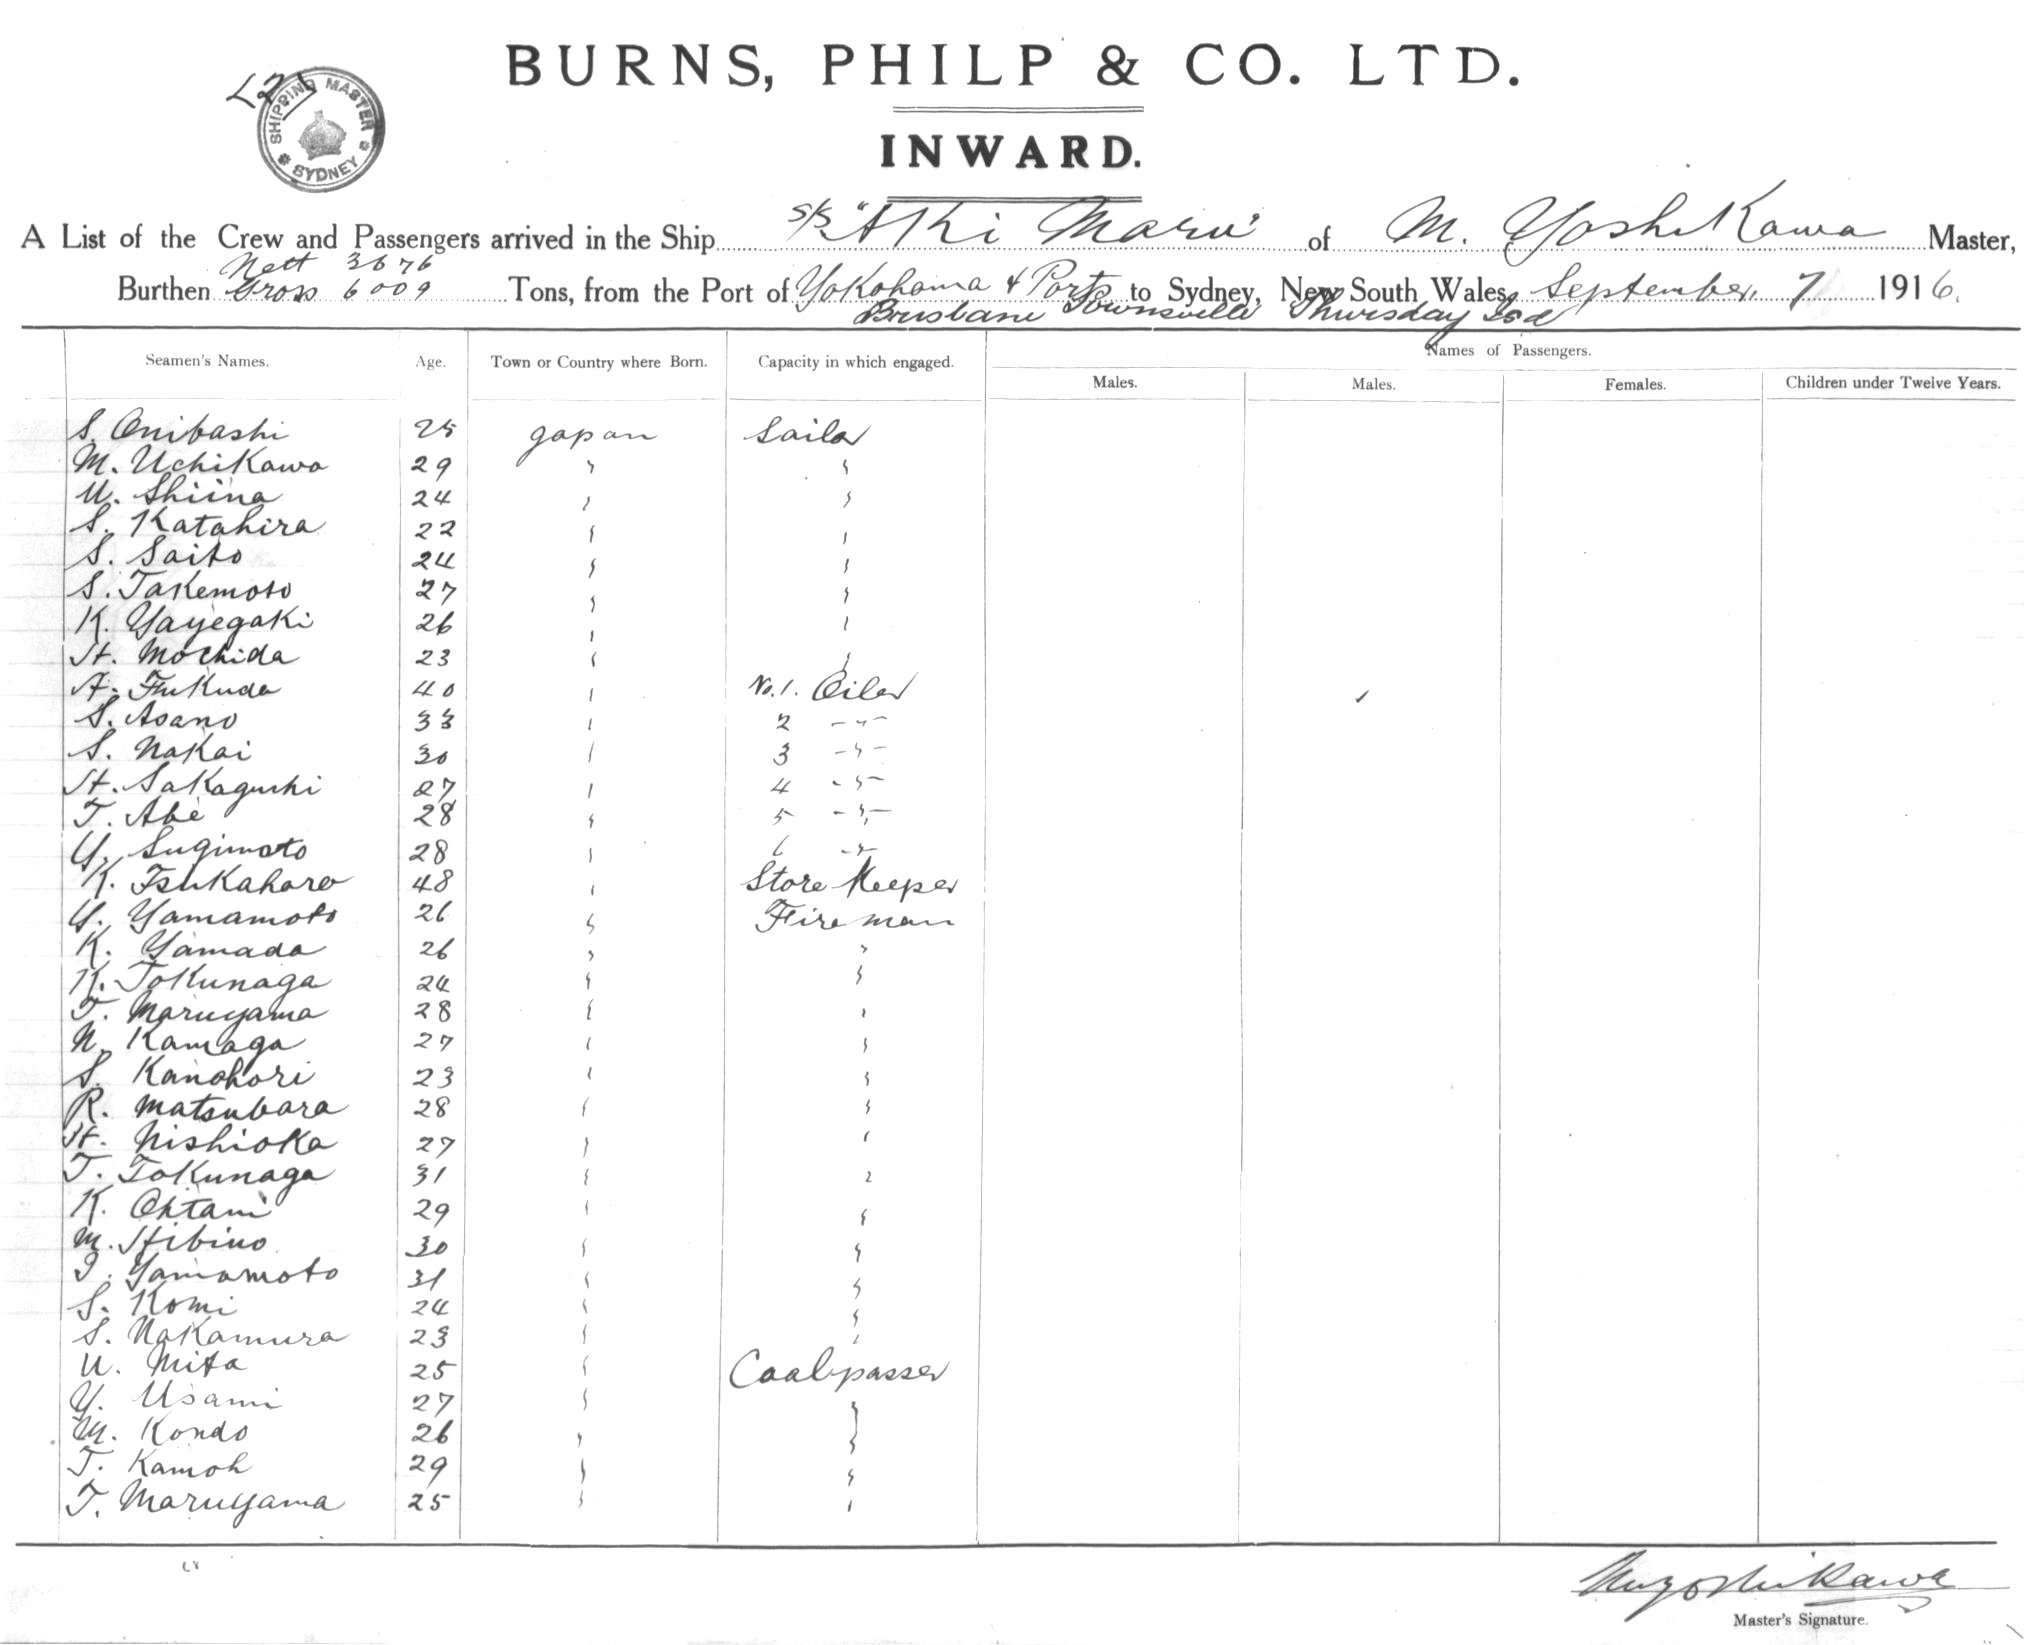 BURNS, PHILP & CO. LTD.
INWARD.
SHIPPING MASTER
SYDNEY
A List of the Crew and Passengers arrived in the Ship S/S "Aki Maru" of M. Yoshikawa Master,
Nett 3676
Burthen Gross 6009 Tons, from the Port of Yokohama & Ports to Sydney, New South Wales, September, 7 1916.
Brisbane Townsville Thursday Isd
Names of Passengers.
Seamen's Names. Age. Town or Country where Born. Capacity in which engaged.
Males. Males. Females. Children under Twelve Years.
S. Onibashi 25 Japan Sailor
M. Uchikawa 29 " "
U. Shiina 24 " "
S. Katahira 22 " "
S. Saito 24 " "
S. Takemoto 27 " "
K. Yayegaki 26 " "
H. Mochida 23 " "
A. Fukuda 40 " No. 1. Oiler
S. Asano 33 " 2 -"-
S. Nakai 30 " 3 -"-
H. Sakaguchi 27 " 4 -"-
T. Abe 28 " 5 -"-
Y. Sugimoto 28 " 6 -"-
K. Tsukahara 48 " Store Keeper
Y. Yamamoto 26 " Fireman
K. Yamada 26 " "
K. Tokunaga 24 " "
T. Maruyama 28 " "
N. Kamaga 27 " "
S. Kanohori 23 " "
R. Matsubara 28 " "
H. Nishioka 27 " "
T. Tokunaga 31 " "
K. Ohtani 29 " "
M. Hibino 30 " "
I. Yamamoto 31 " "
S. Komi 24 " "
S. Nakamura 23 " "
U. Mita 25 " Coalpasser
Y. Usami 27 " "
M. Kondo 26 " "
T. Kamoh 29 " "
T. Maruyama 25 " "
M Yoshikawa
Master's Signature.